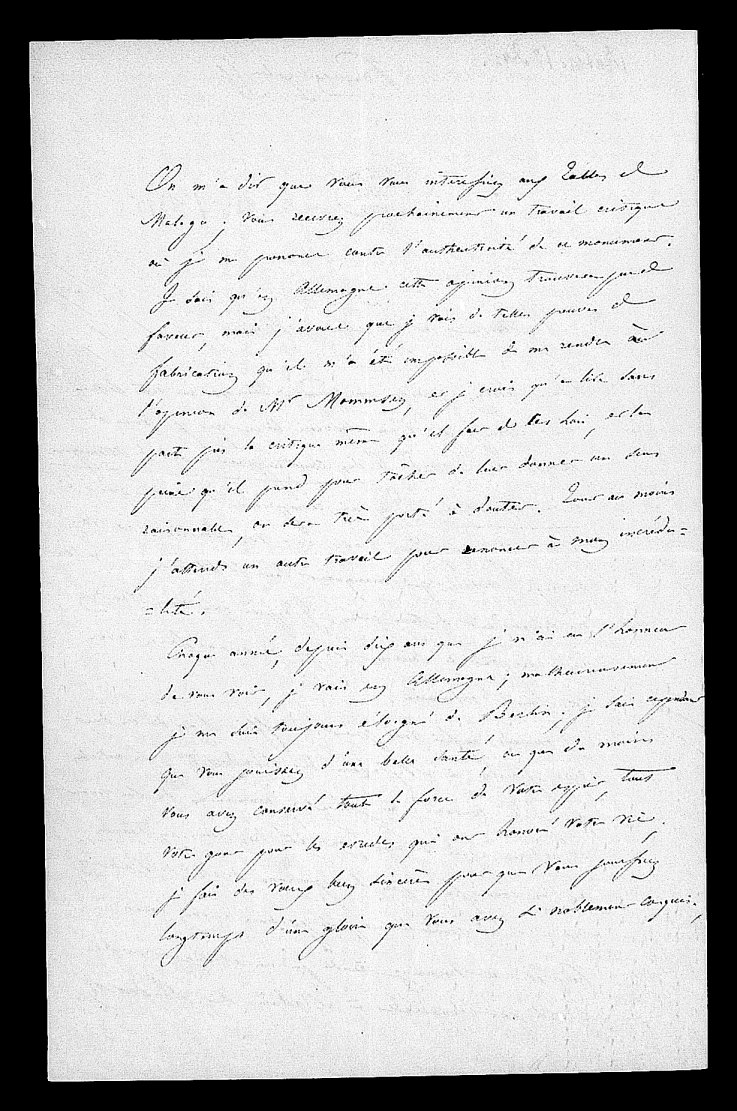 On m'a dit que vous vous intéressiez aux Tables de
Malaga ; vous recevrez prochainement un travail critique
où je me prononce contre l'authenticité de ce monument.
Je sais qu'en Allemagne cette opinion trouvera peu de
faveur, mais j'avoue que je vois de telles preuves de
fabrication qu'il m'a été impossible de me rendre à
l'opinion de Mr Mommsen, et je crois qu'en lisant sans
parti pris la critique même qu'il fait de ces lois, et la
peine qu'il prend pour tâcher de leur donner un sens
raisonnable, on sera très porté à douter. Tout au moins
j'attends un autre travail pour renoncer à mon incrédu=
=lité.
Chaque année, depuis dix ans que je n'ai eu l'honneur
de vous voir, je vais en Allemagne ; malheureusement
je me suis toujours éloigné de Berlin ; je sais cependant
que vous jouissez d'une belle santé, ou que du moins
vous avez conservé toute la force de votre esprit, tout
votre gout pour les etudes qui ont honoré votre vie.
je fais des voeux bien sincères pour que vous jouissiez
longtemps d'une gloire que vous avez si noblement conquise,